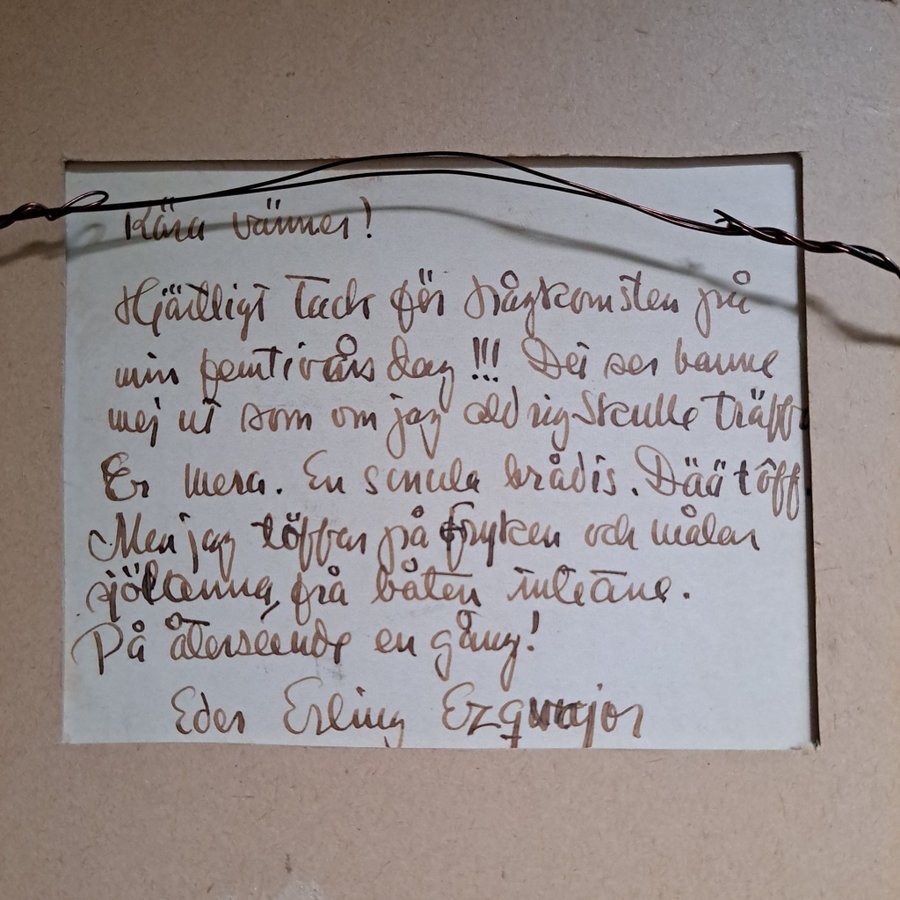 Kära vänner!
Hjärtligt tack för hågkomsten på
min femtivårs dag!!! Det ser banne
mej ut som om jag aldrig skulle träff
Er mera. En smula brådis. Dää töff
Men jag töffar på Fryken och målar
från båten
På återseende en gång!
Eder Erling